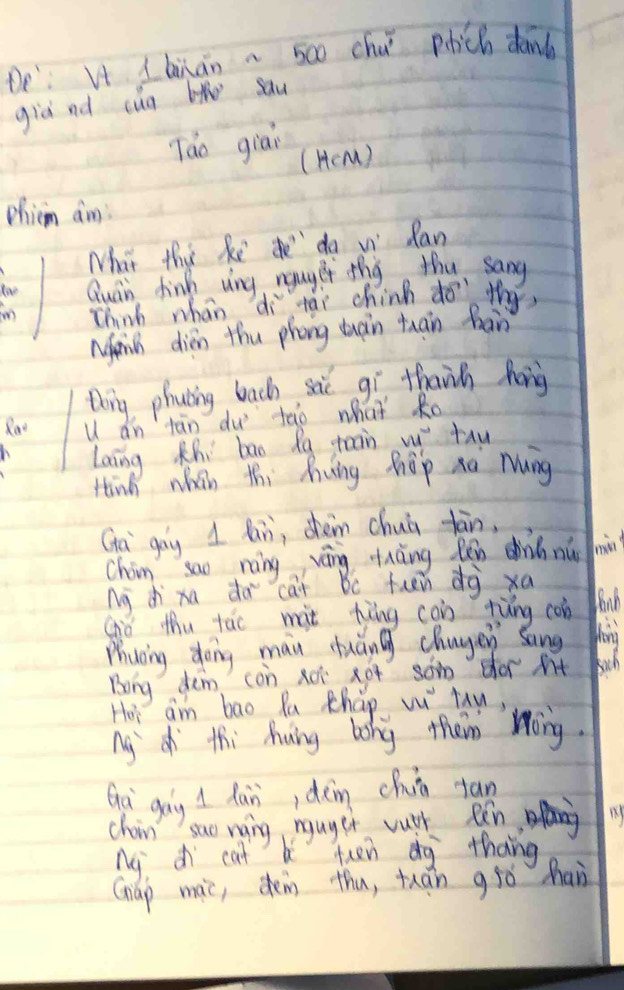 Đề: Vt 1 bàivăn ~ 500 chữ ptích đánh
giá nd của bthơ sau
Tảo giải
(HCM)
Phiên âm:
Nhất thứ kê đề dạ vị lan
Quần tinh ủng nguyệt thg thu sang
Chinh nhân dĩ tại chinh đồ thg,
Nghênh diện thu phong trận trận hàn
Đông phương bạch sắc dĩ thành hồng
U ám tàn dư tảo nhất ko
Loãng khí bao la toàn vũ trụ
Hành nhân thi hứng hốp xa Nùng
Gà gáy 1 lần, đêm chửa tàn,
Chòm sao nâng vầng trăng lên đỉnh núi
Ng đi xa đã cất bc trên đg xa
Gió thu tác mặt từng cơn từng cơn
Phương đông màu trắng chuyển sang
Bóng đêm còn rơi rớt sớm đã hết
Hơi ấm bao la khắp vũ trụ,
Ng đi thi hứng bỗng thêm nồng.
Gà gáy 1 lần, đêm chửa tan
Chòm sao nâng nguyệt vượt lên ngàng
Ng đi cất bc trên đg thẳng
Giáp mặc, đêm thu, trận gió hàn